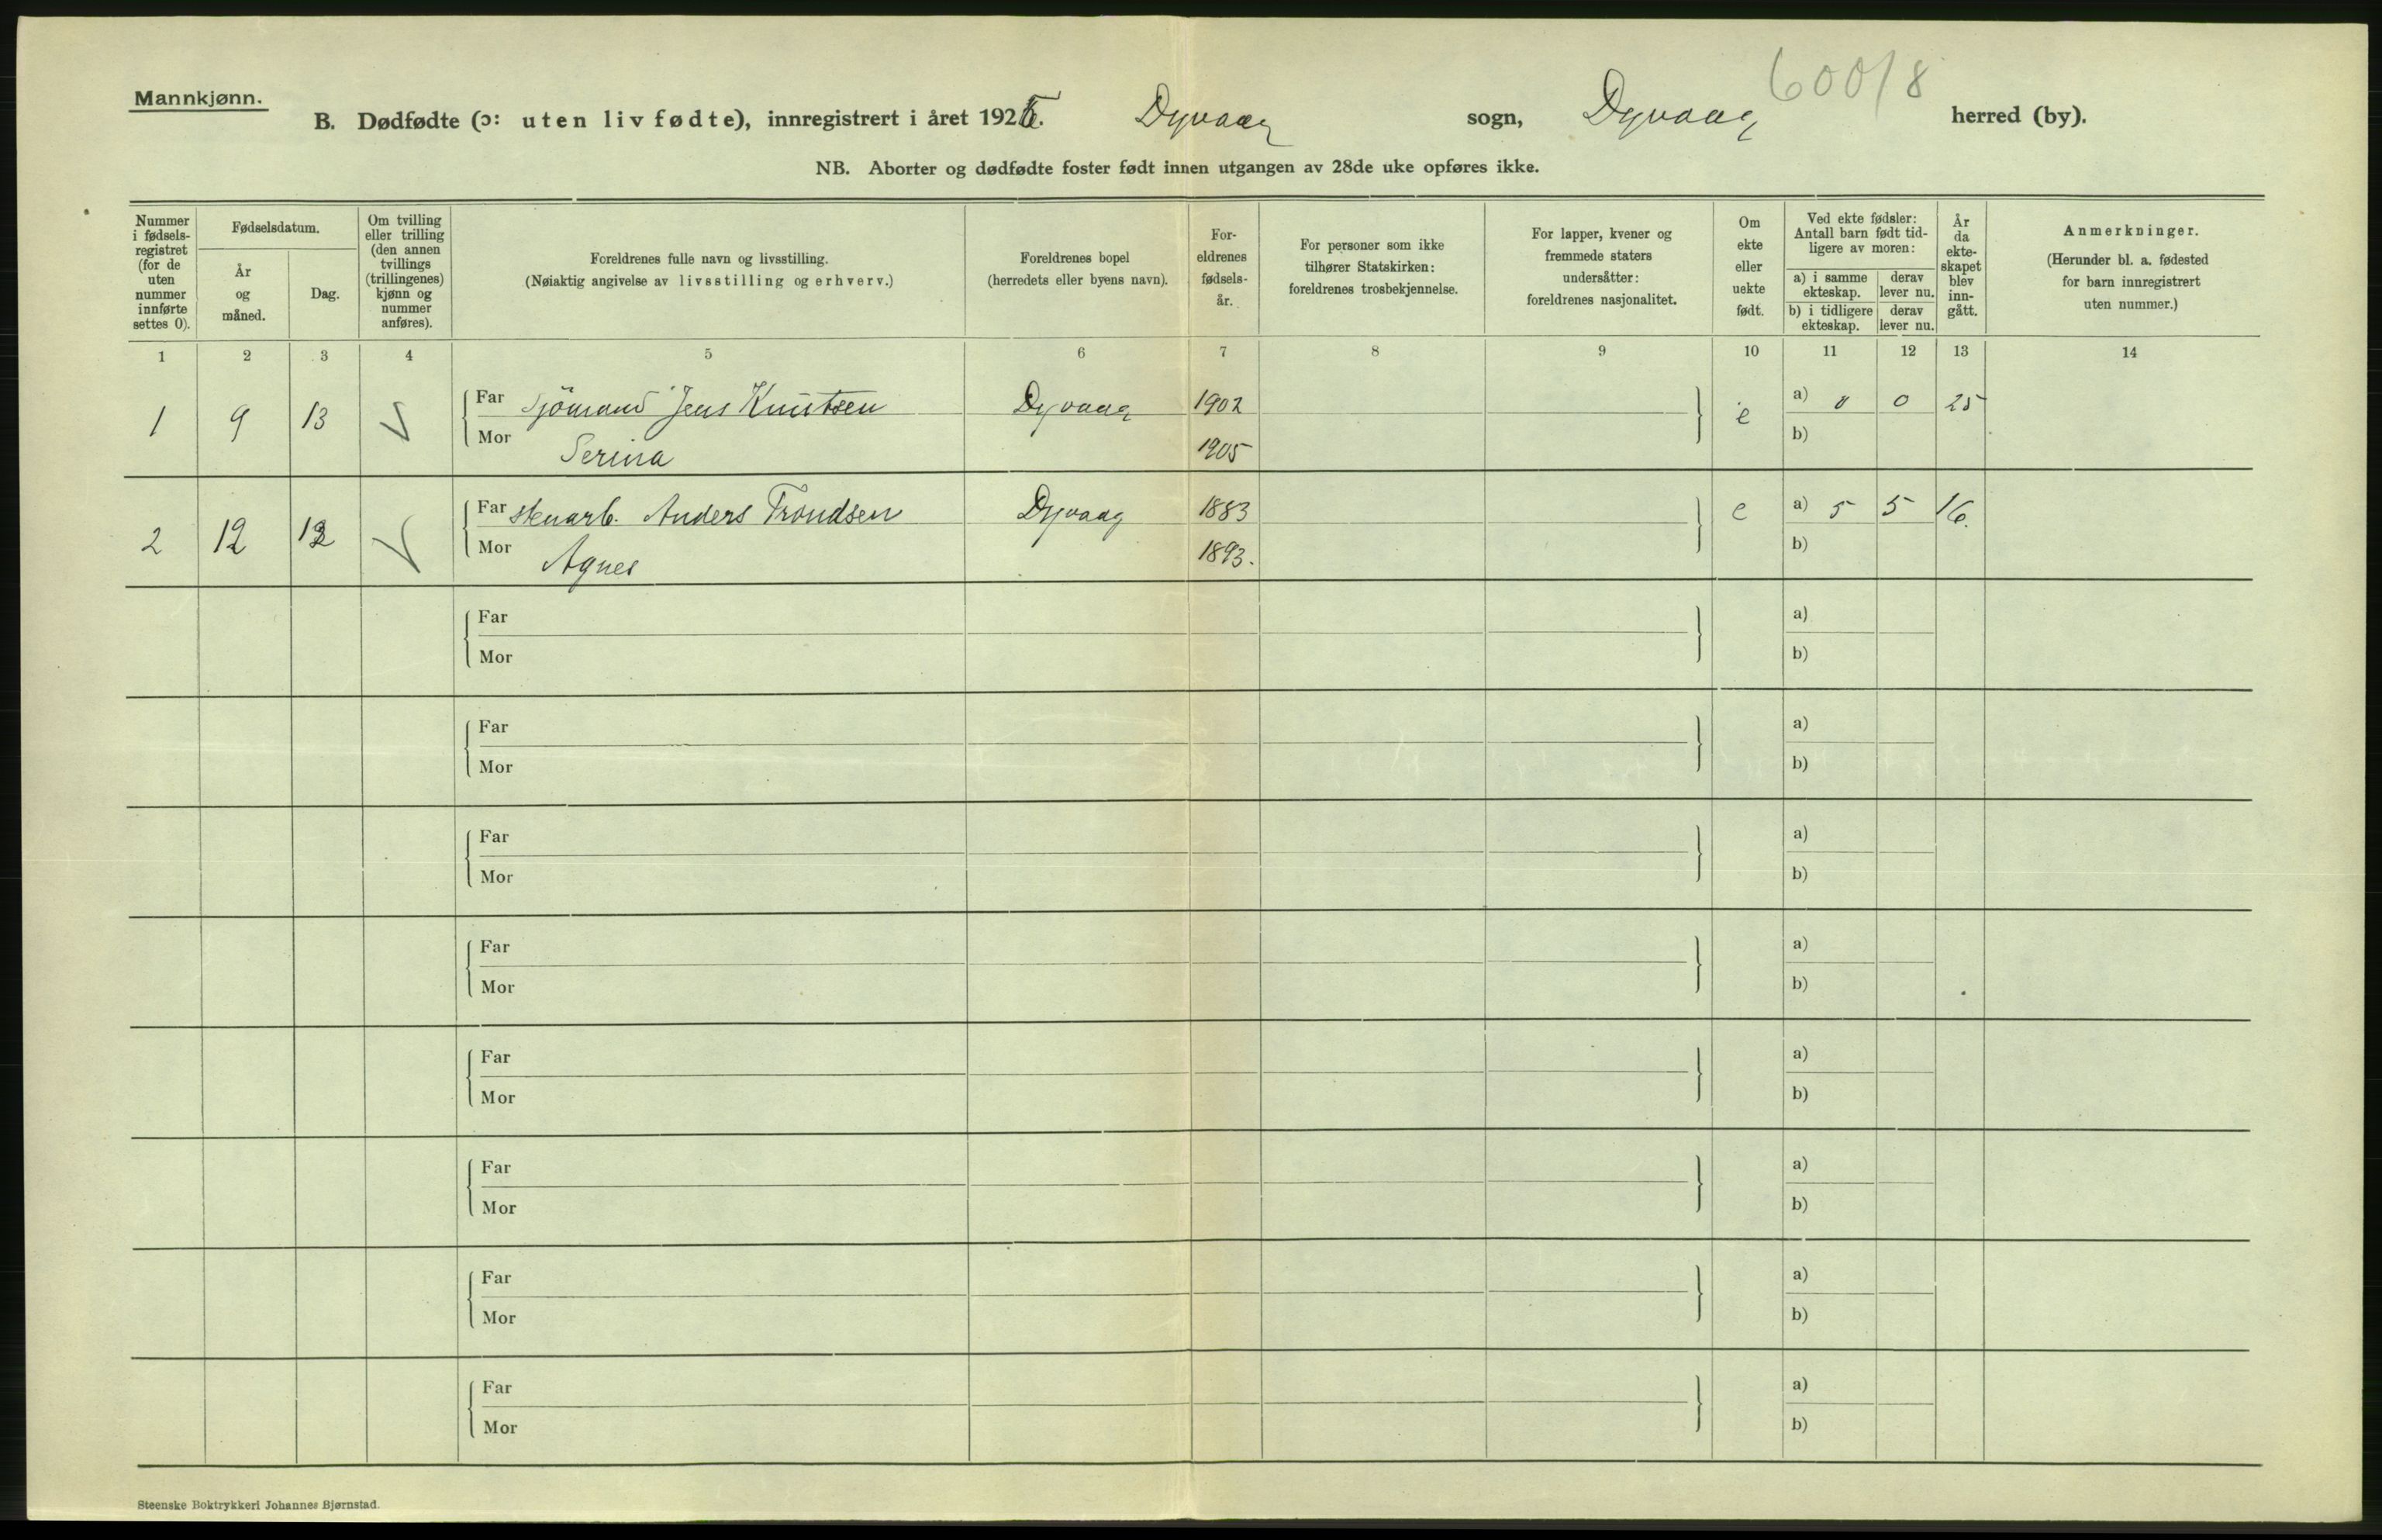 60018
Mannkjønn.
B. Dødfødte (ɔ: uten liv fødte), innregistrert i året 192 . Dyvaag sogn, Dyvaag herred (by).
NB. Aborter og dødfødte foster født innen utgangen av 28de uke opføres ikke.
Nummer i fødsels-registret (for de uten nummer innførte settes 0).
Fødselsdatum.
År og måned.
Dag.
Om tvilling eller trilling (den annen tvillings (trillingenes) kjønn og nummer anføres).
Foreldrenes fulle navn og livsstilling.
(Nøiaktig angivelse av livsstilling og erhverv.)
Foreldrenes bopel
(herredets eller byens navn).
For-eldrenes fødsels-år.
For personer som ikke tilhører Statskirken: foreldrenes trosbekjennelse.
For lapper, kvener og fremmede staters undersåtter: foreldrenes nasjonalitet.
Om ekte eller uekte født.
Ved ekte fødsler: Antall barn født tid-ligere av moren:
a) i samme ekteskap.
derav lever nu.
b) i tidligere ekteskap.
derav lever nu.
År da ekte-skapet blev inn-gått.
Anmerkninger.
(Herunder bl. a. fødested for barn innregistrert uten nummer.)
1 2 3 4 5 6 7 8 9 10 11 12 13 14
1 9 13 Far Sjömand Jens Knutsen Dyvaag 1902 e a) 0 0 25
Mor Serina 1905 b)
2 12 Far stenarb. Anders Trondsen Dyvaag 1883 e a) 5 5 16.
Mor Agnes 1893. b)
Far a)
Mor b)
Far a)
Mor b)
Far a)
Mor b)
Far a)
Mor b)
Far a)
Mor b)
Far a)
Mor b)
Far a)
Mor b)
Far a)
Mor b)
Steenske Boktrykkeri Johannes Bjørnstad.